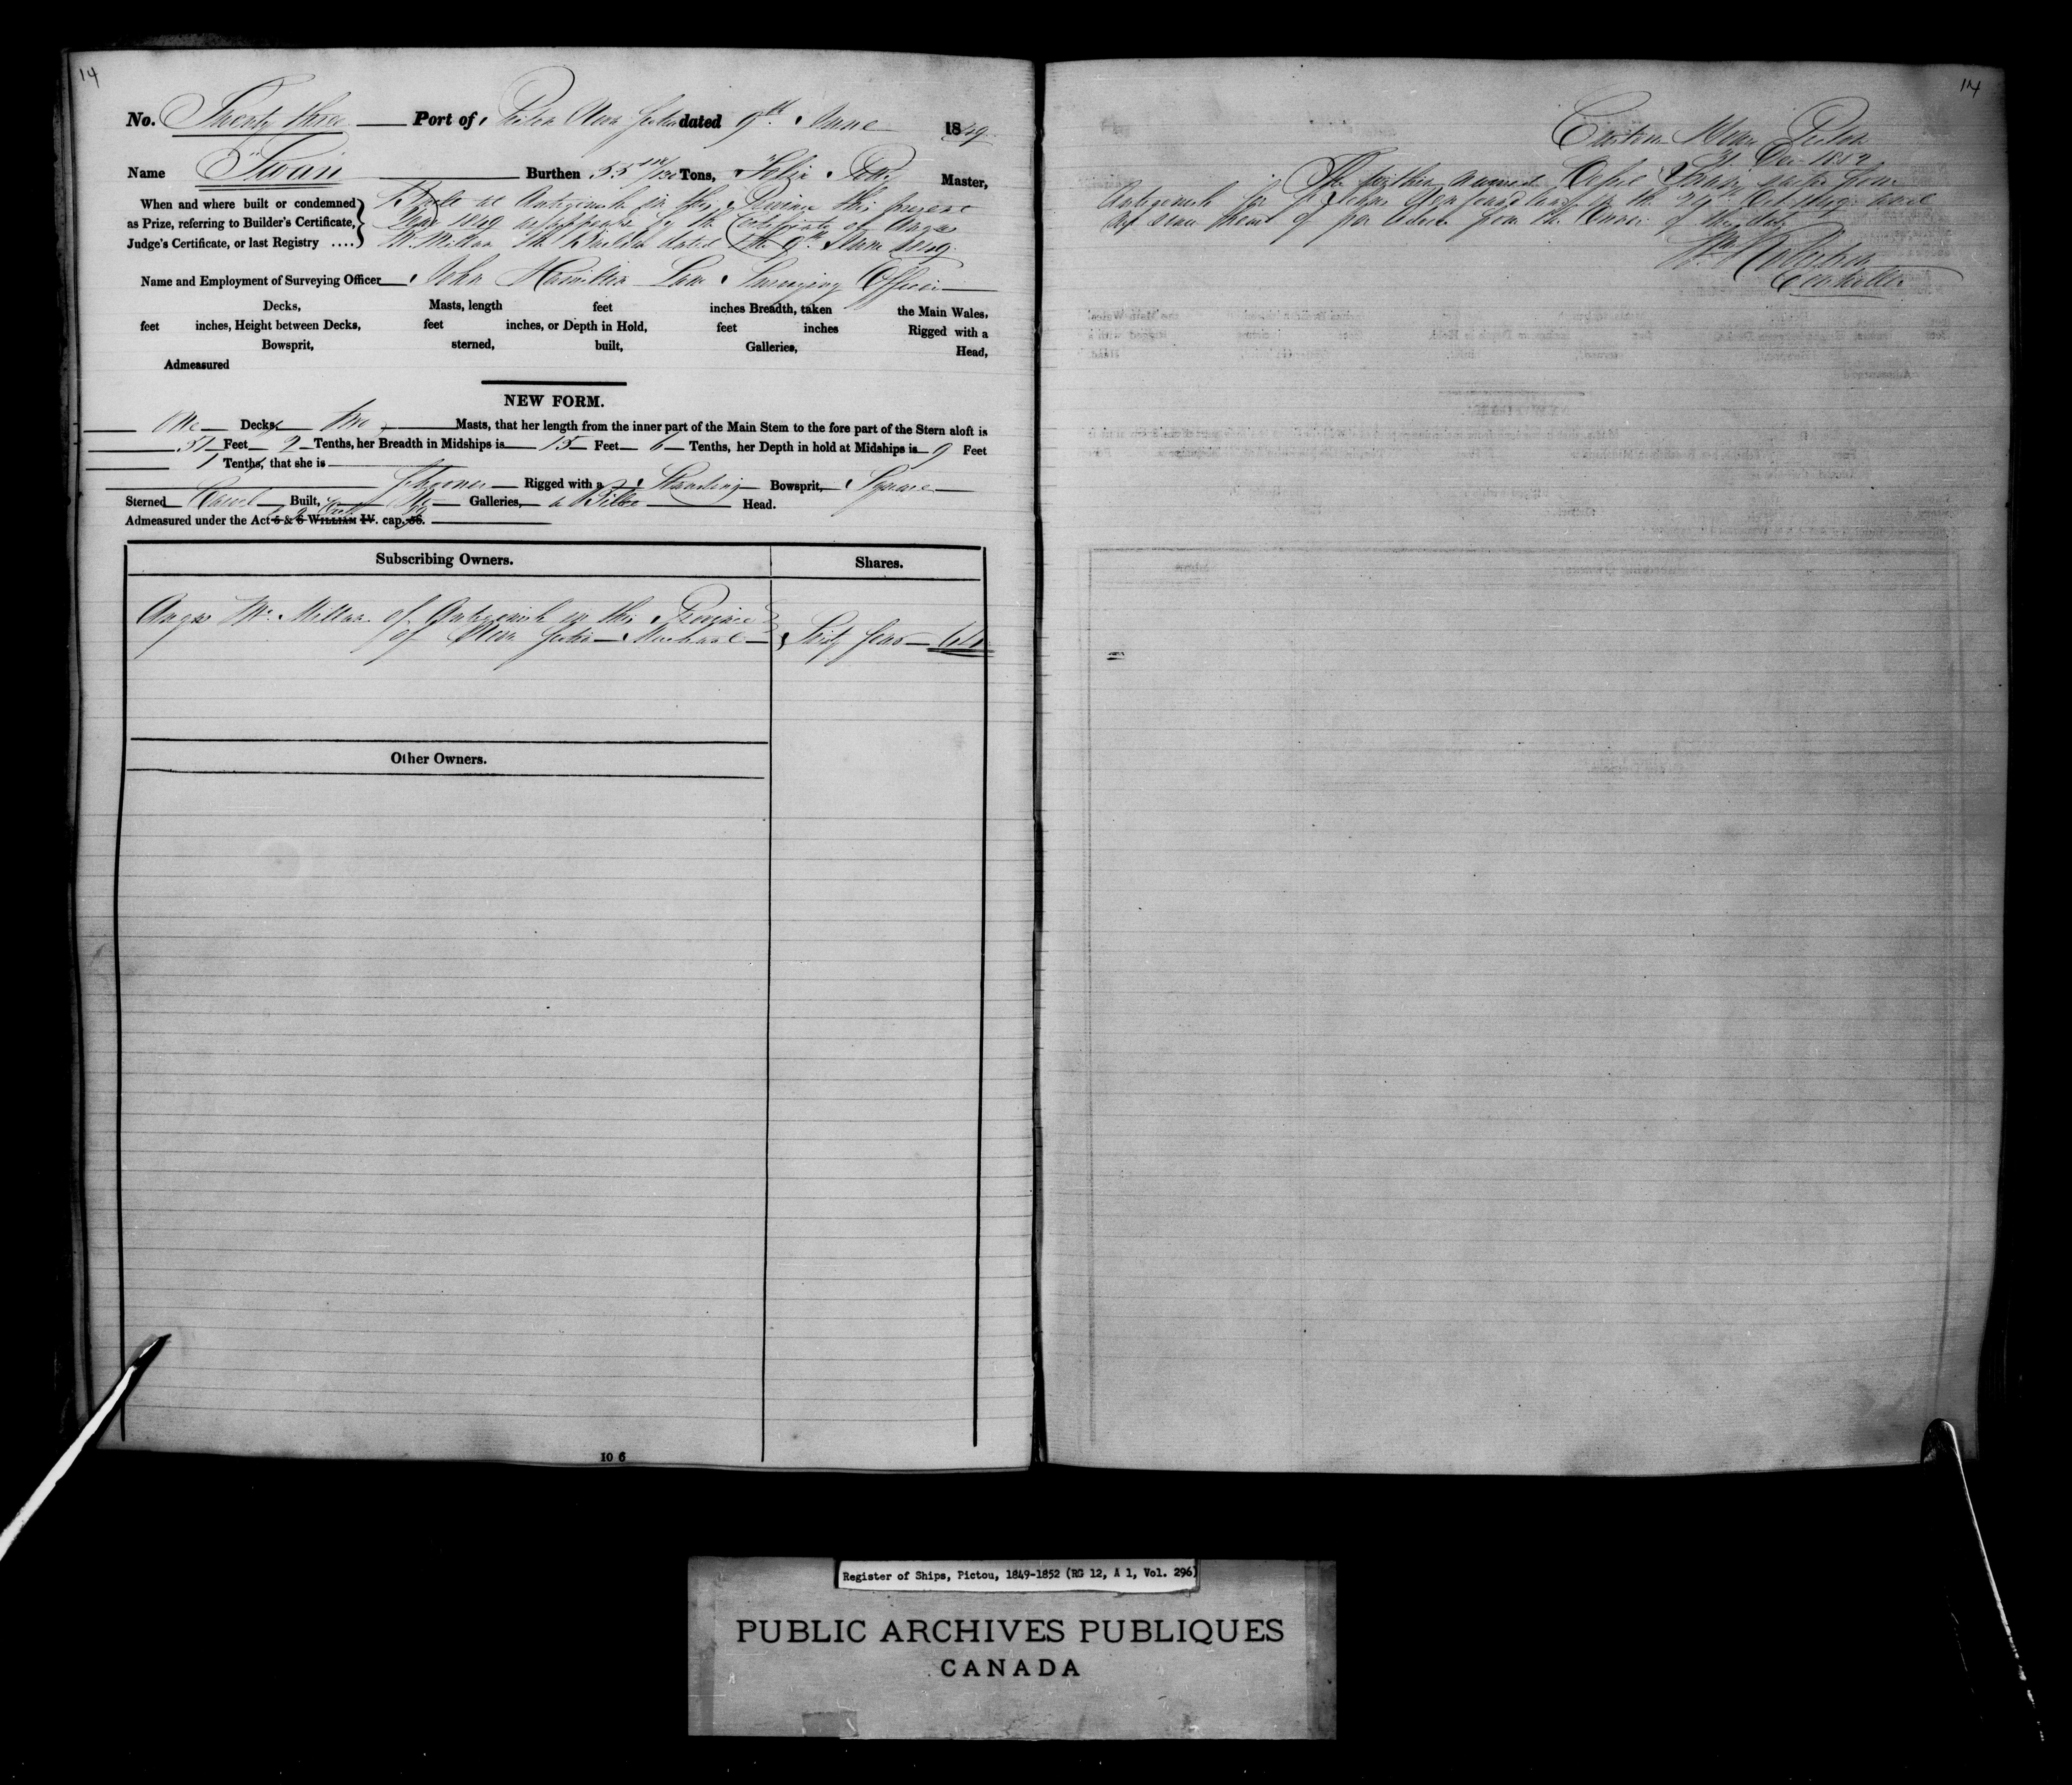 14
No. Twenty three Port of Pictou Nova Scotia dated 9th June 1849
Name "Swan" Burthen 55 Tons, Felix Master,
When and where built or condemned
as Prize, referring to Builder's Certificate,
Judge's Certificate, or last Registry ....
Built at Antigonish in this Province this present
Year 1849 as appears by the Certificate of Angus
McMillan the Builder dated the 9th June 1849.
Name and Employment of Surveying Officer John Hamilton Lane Surveying Officer
Decks, Masts, length feet inches Breadth, taken the Main Wales,
feet inches, Height between Decks, feet inches, or Depth in Hold, feet inches Rigged with a
Bowsprit, sterned, built, Galleries, Head,
Admeasured
NEW FORM.
One Decks, two Masts, that her length from the inner part of the Main Stem to the fore part of the Stern aloft is
51 Feet 9 Tenths, her Breadth in Midships is 15 Feet 6 Tenths, her Depth in hold at Midships is 9 Feet
1 Tenths, that she is
Schooner Rigged with a Standing Bowsprit, Square
Sterned Carvel Built, No Galleries, a Billet Head.
Admeasured under the Act 5 & 6 WILLIAM IV. cap. 56.
Subscribing Owners. Shares.
Angus McMillan of Antigonish in this Province
of Nova Scotia Merchant Sixty four 64
Other Owners.
10 6
14
Custom House Pictou
31 Dec 1852
The within named Vessel sailed from
Antigonish for St Johns Newfoundland on the Oct 1849 and
not since heard of per advice from the Owner of this date
Wm Robertson
Controller
Register of Ships, Pictou, 1849-1852 (RG 12, A 1, Vol. 296)
PUBLIC ARCHIVES PUBLIQUES
CANADA